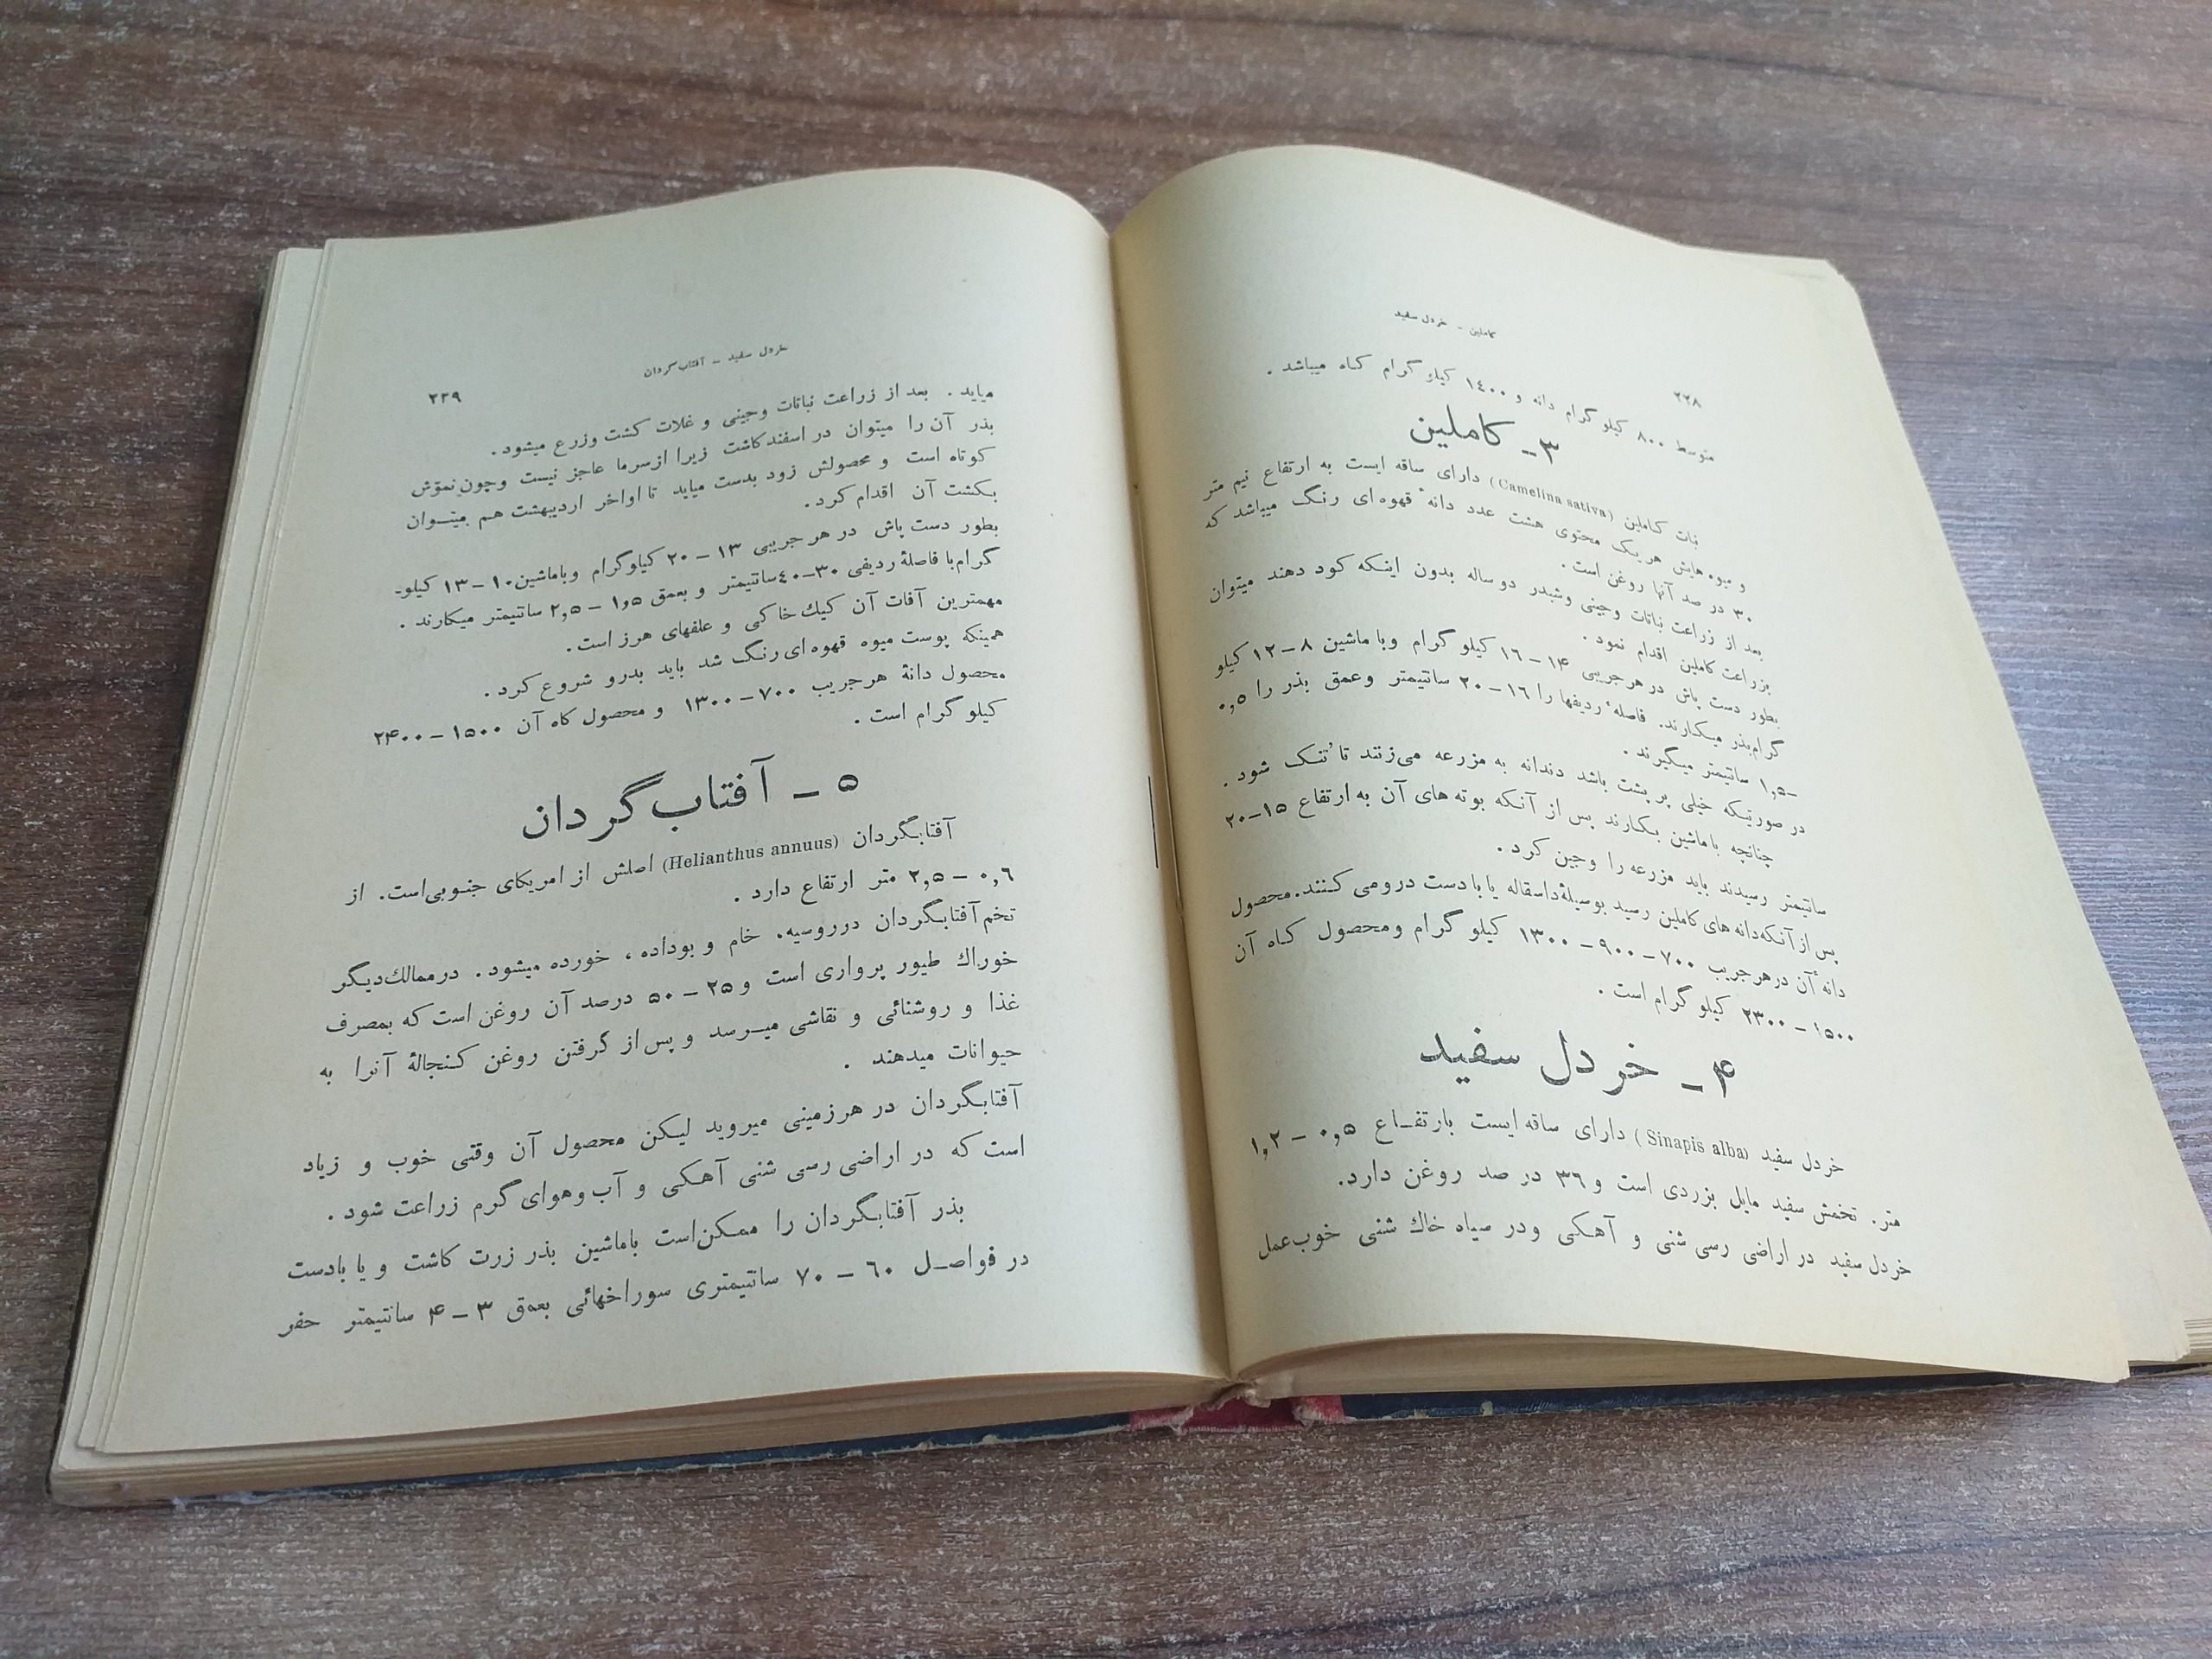 ۲۲۸
کاملین - خردل سفید
متوسط ۸۰۰ کیلو گرام دانه و ۱۴۰۰ کیلو گرام کاه میباشد .
۳- کاملین
نبات کاملین (Camelina sativa) دارای ساقه ایست به ارتفاع نیم متر
و میوه هایش هر یک محتوی هشت عدد دانهٔ قهوه ای رنگ میباشد که
۳۰ در صد آنها روغن است .
بعد از زراعت نباتات وجینی وشبدر دو ساله بدون اینکه کود دهند میتوان
بزراعت کاملین اقدام نمود .
بطور دست پاش در هر جریبی ۱۴ – ۱۶ کیلو گرام وبا ماشین ۸ – ۱۲ کیلو
گرام بذر میکارند. فاصلهٔ ردیفها را ۱۶ – ۲۰ سانتیمتر وعمق بذر را ۰,۵
–۱,۵ سانتیمتر میگیرند .
در صورتیکه خیلی پر پشت باشد دندانه به مزرعه می‌زنند تا تُنک شود .
چنانچه باماشین بکارند پس از آنکه بوته های آن به ارتفاع ۱۵–۲۰
سانتیمتر رسیدند باید مزرعه را وجین کرد .
پس از آنکه دانه های کاملین رسید بوسیلهٔ داسقاله یا با دست درو می کنند. محصول
دانهٔ آن در هر جریب ۷۰۰ – ۹۰۰ – ۱۳۰۰ کیلو گرام ومحصول کاه آن
۱۵۰۰ – ۲۳۰۰ کیلو گرام است .
۴ – خردل سفید
خردل سفید (Sinapis alba) دارای ساقه ایست بارتفـاع ۰,۵ – ۱,۲
متر. تخمش سفید مایل بزردی است و ۳۶ در صد روغن دارد.
خردل سفید در اراضی رسی شنی و آهکی ودر سیاه خاك شنی خوب عمل
خردل سفید – آفتاب گردان
۲۲۹
میاید . بعد از زراعت نباتات وجینی و غلات کشت وزرع میشود .
بذر آن را میتوان در اسفند کاشت زیرا از سرما عاجز نیست وچون نموّش
کوتاه است و محصولش زود بدست میاید تا اواخر اردیبهشت هم میتـوان
بکشت آن اقدام کرد .
بطور دست پاش در هر جریبی ۱۳ – ۲۰ کیلوگرام وباماشین ۱۰ – ۱۳ کیلو-
گرام با فاصلهٔ ردیفی ۳۰–۴۰ سانتیمتر و بعمق ۱,۵ – ۲,۵ سانتیمتر میکارند .
مهمترین آفات آن کیك خاکی و علفهای هرز است .
همینکه پوست میوه قهوه ای رنگ شد باید بدرو شروع کرد .
محصول دانهٔ هر جریب ۷۰۰ – ۱۳۰۰ و محصول کاه آن ۱۵۰۰ – ۲۴۰۰
کیلو گرام است .
۵ – آفتاب گردان
آفتابگردان (Helianthus annuus) اصلش از امریکای جنوبی است. از
۰,۶ – ۲,۵ متر ارتفاع دارد .
تخم آفتابگردان درروسیه، خام و بوداده ، خورده میشود . در ممالك دیگر
خوراك طیور پرواری است و ۲۵ – ۵۰ درصد آن روغن است که بمصرف
غذا و روشنائی و نقاشی میـرسد و پس از گرفتن روغن کنجالهٔ آنرا به
حیوانات میدهند .
آفتابگردان در هر زمینی میروید لیکن محصول آن وقتی خوب و زیاد
است که در اراضی رسی شنی آهکی و آب وهوای گرم زراعت شود .
بذر آفتابگردان را ممکن است باماشین بذر زرت کاشت و یا بادست
در فواصـل ۶۰ – ۷۰ سانتیمتری سوراخهائی بعمق ۳ – ۴ سانتیمتر حفر